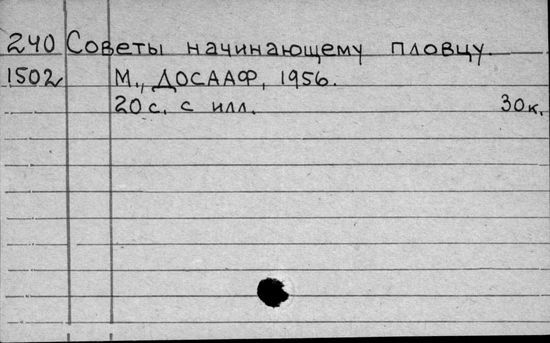 240 Советы начинающему пловцу.
1502 М., ДОСААФ, 1956.
20 с. с илл. 30 к.